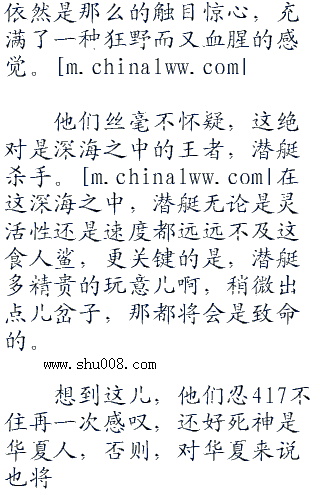 依然是那么的触目惊心，充
满了一种狂野而又血腥的感
觉。[m.china1ww.com|
他们丝毫不怀疑，这绝
对是深海之中的王者，潜艇
杀手。[m.china1ww.com|在
这深海之中，潜艇无论是灵
活性还是速度都远远不及这
食人鲨，更关键的是，潜艇
多精贵的玩意儿啊，稍微出
点儿岔子，那都将会是致命
的。
www.shu008.com
想到这儿，他们忍417不
住再一次感叹，还好死神是
华夏人，否则，对华夏来说
也将